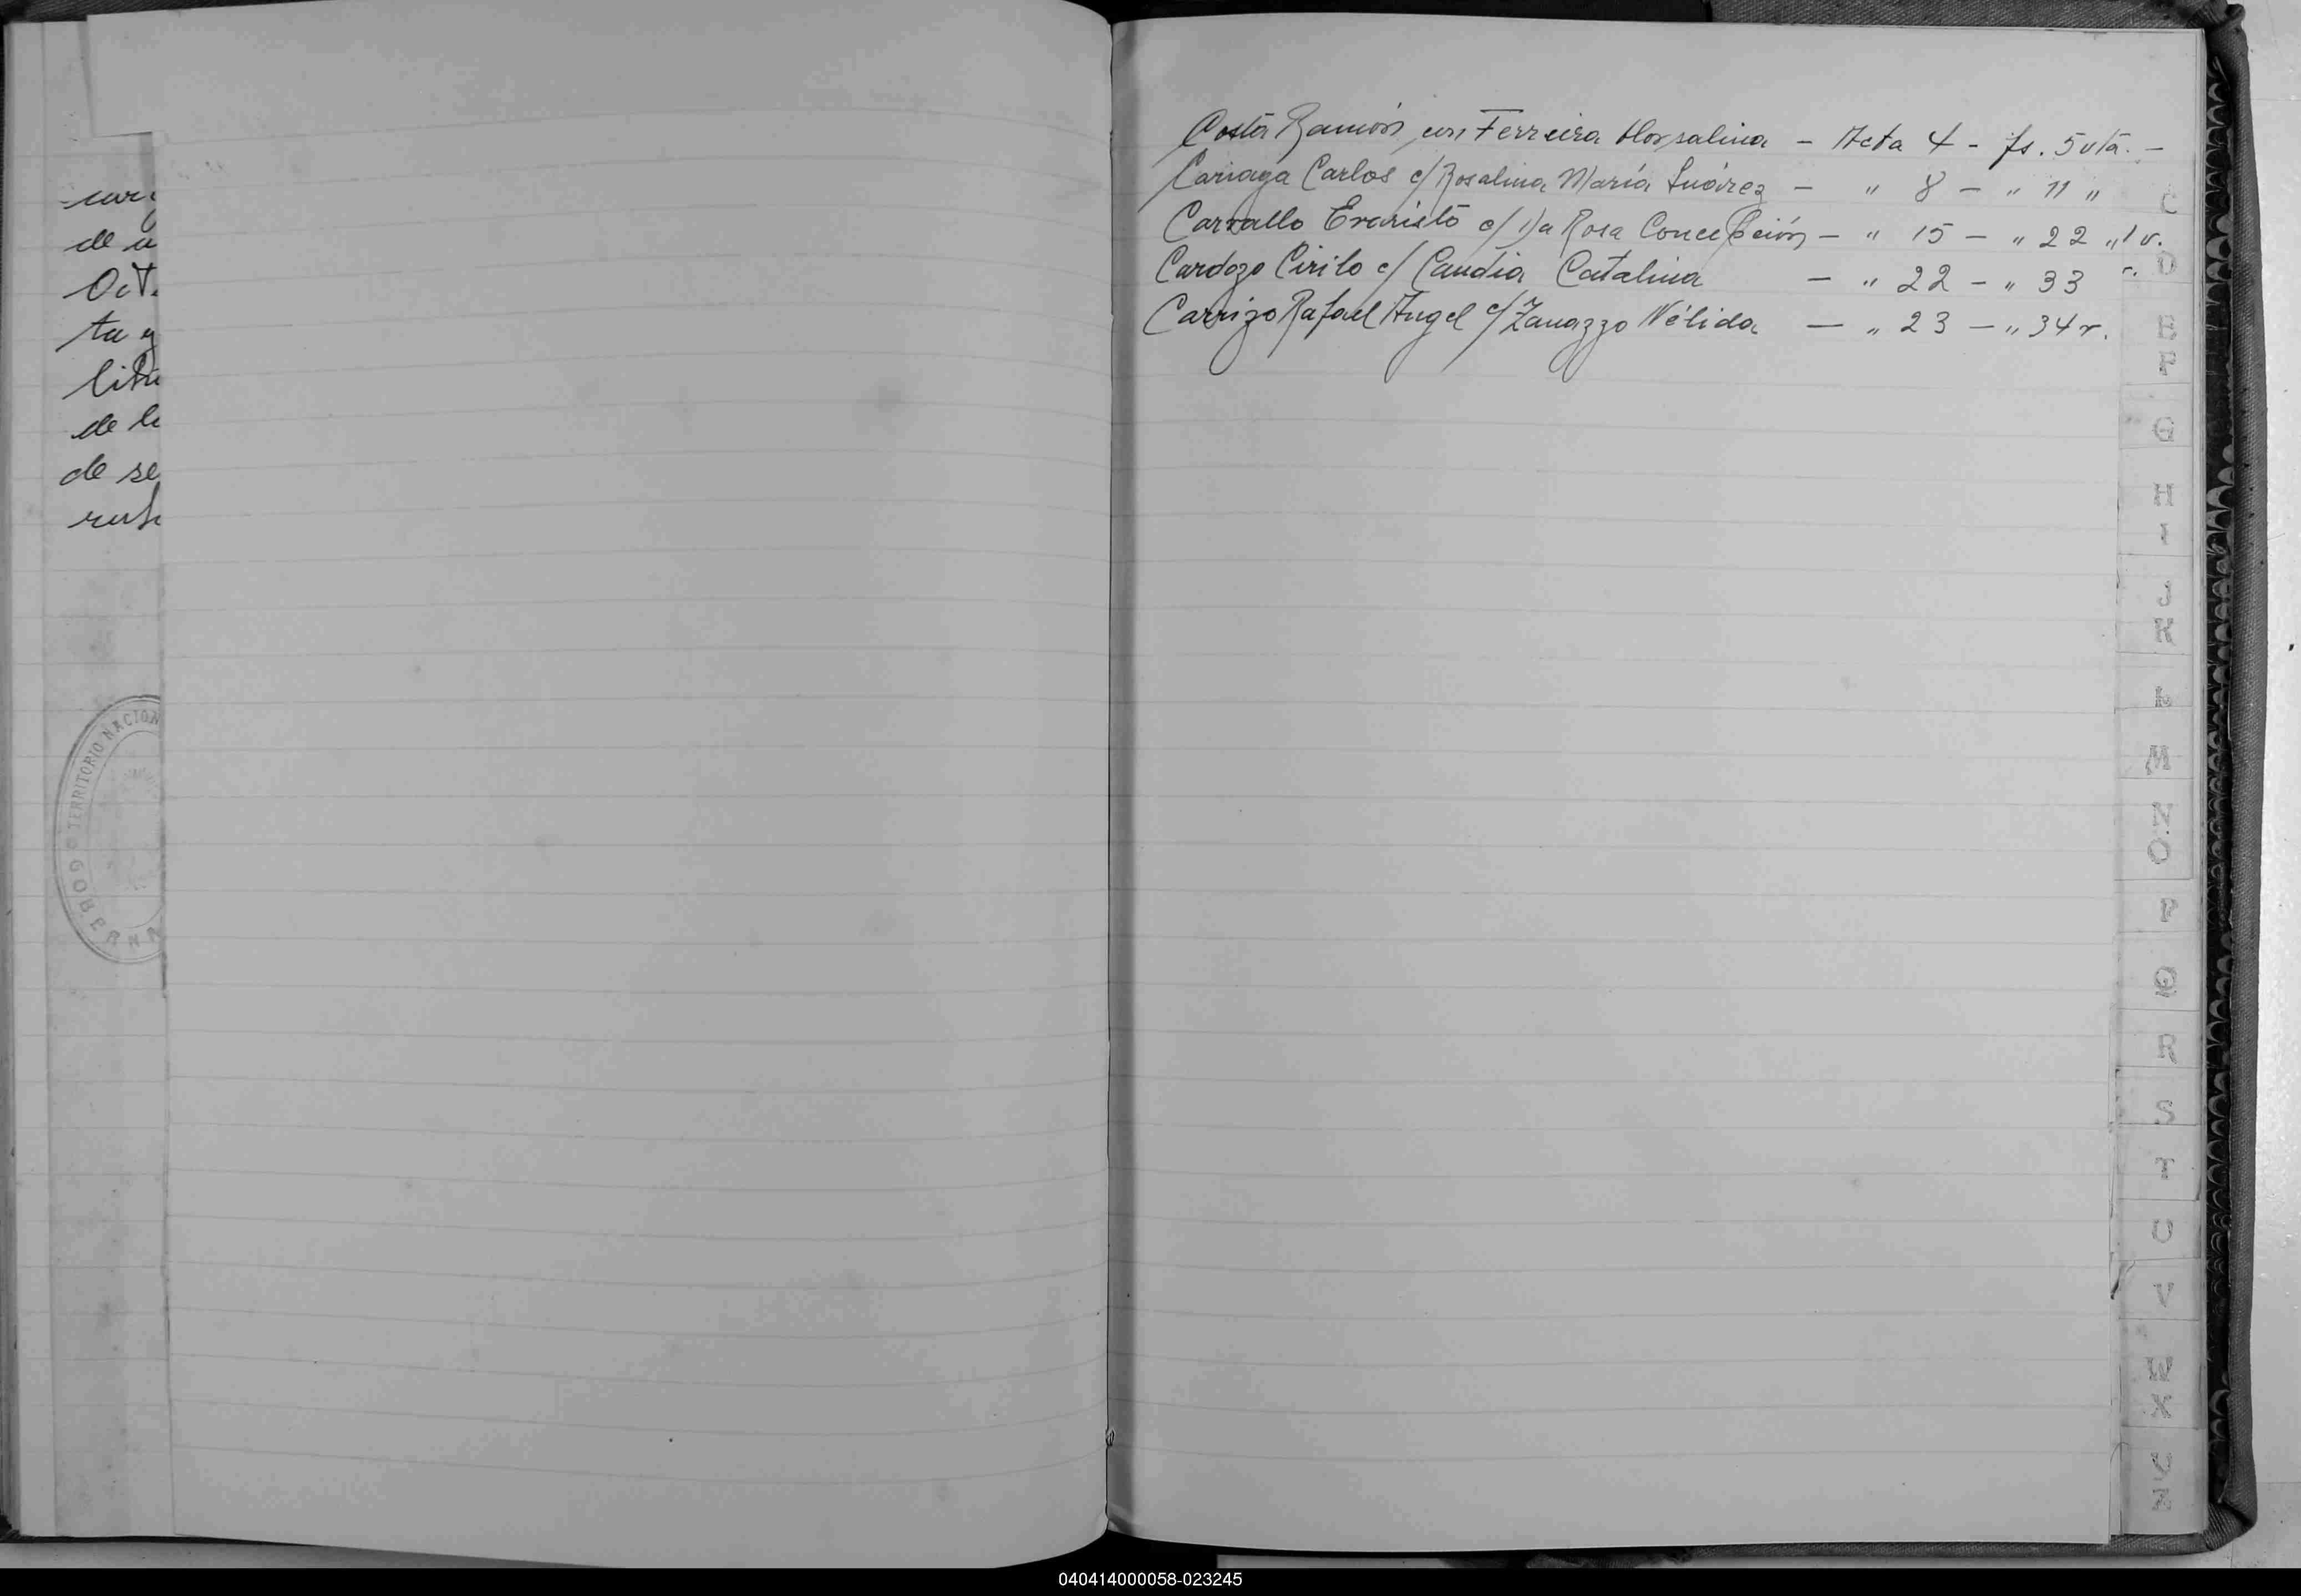 cur
de u
Oct.
ta y
libr
de l
de se
rub
TERRITORIO NACION
GOBERNA
Costa Ramón, con Ferreira Horsalina - Acta 4 - fs. 5 vta. -
Cariaga Carlos c/ Rosalina María Suárez - " 8 - " 11 "
Carvallo Evaristo c/ Da Rosa Concepción - " 15 - " 22 " v.
Cardozo Cirilo c/ Candia Catalina - " 22 - " 33 v.
Carrizo Rafael Angel c/ Zanazzo Nélida - " 23 - " 34 v.
C
D
E
F
G
H
I
J
K
L
M
N
O
P
Q
R
S
T
U
V
W
X
040414000058-023245